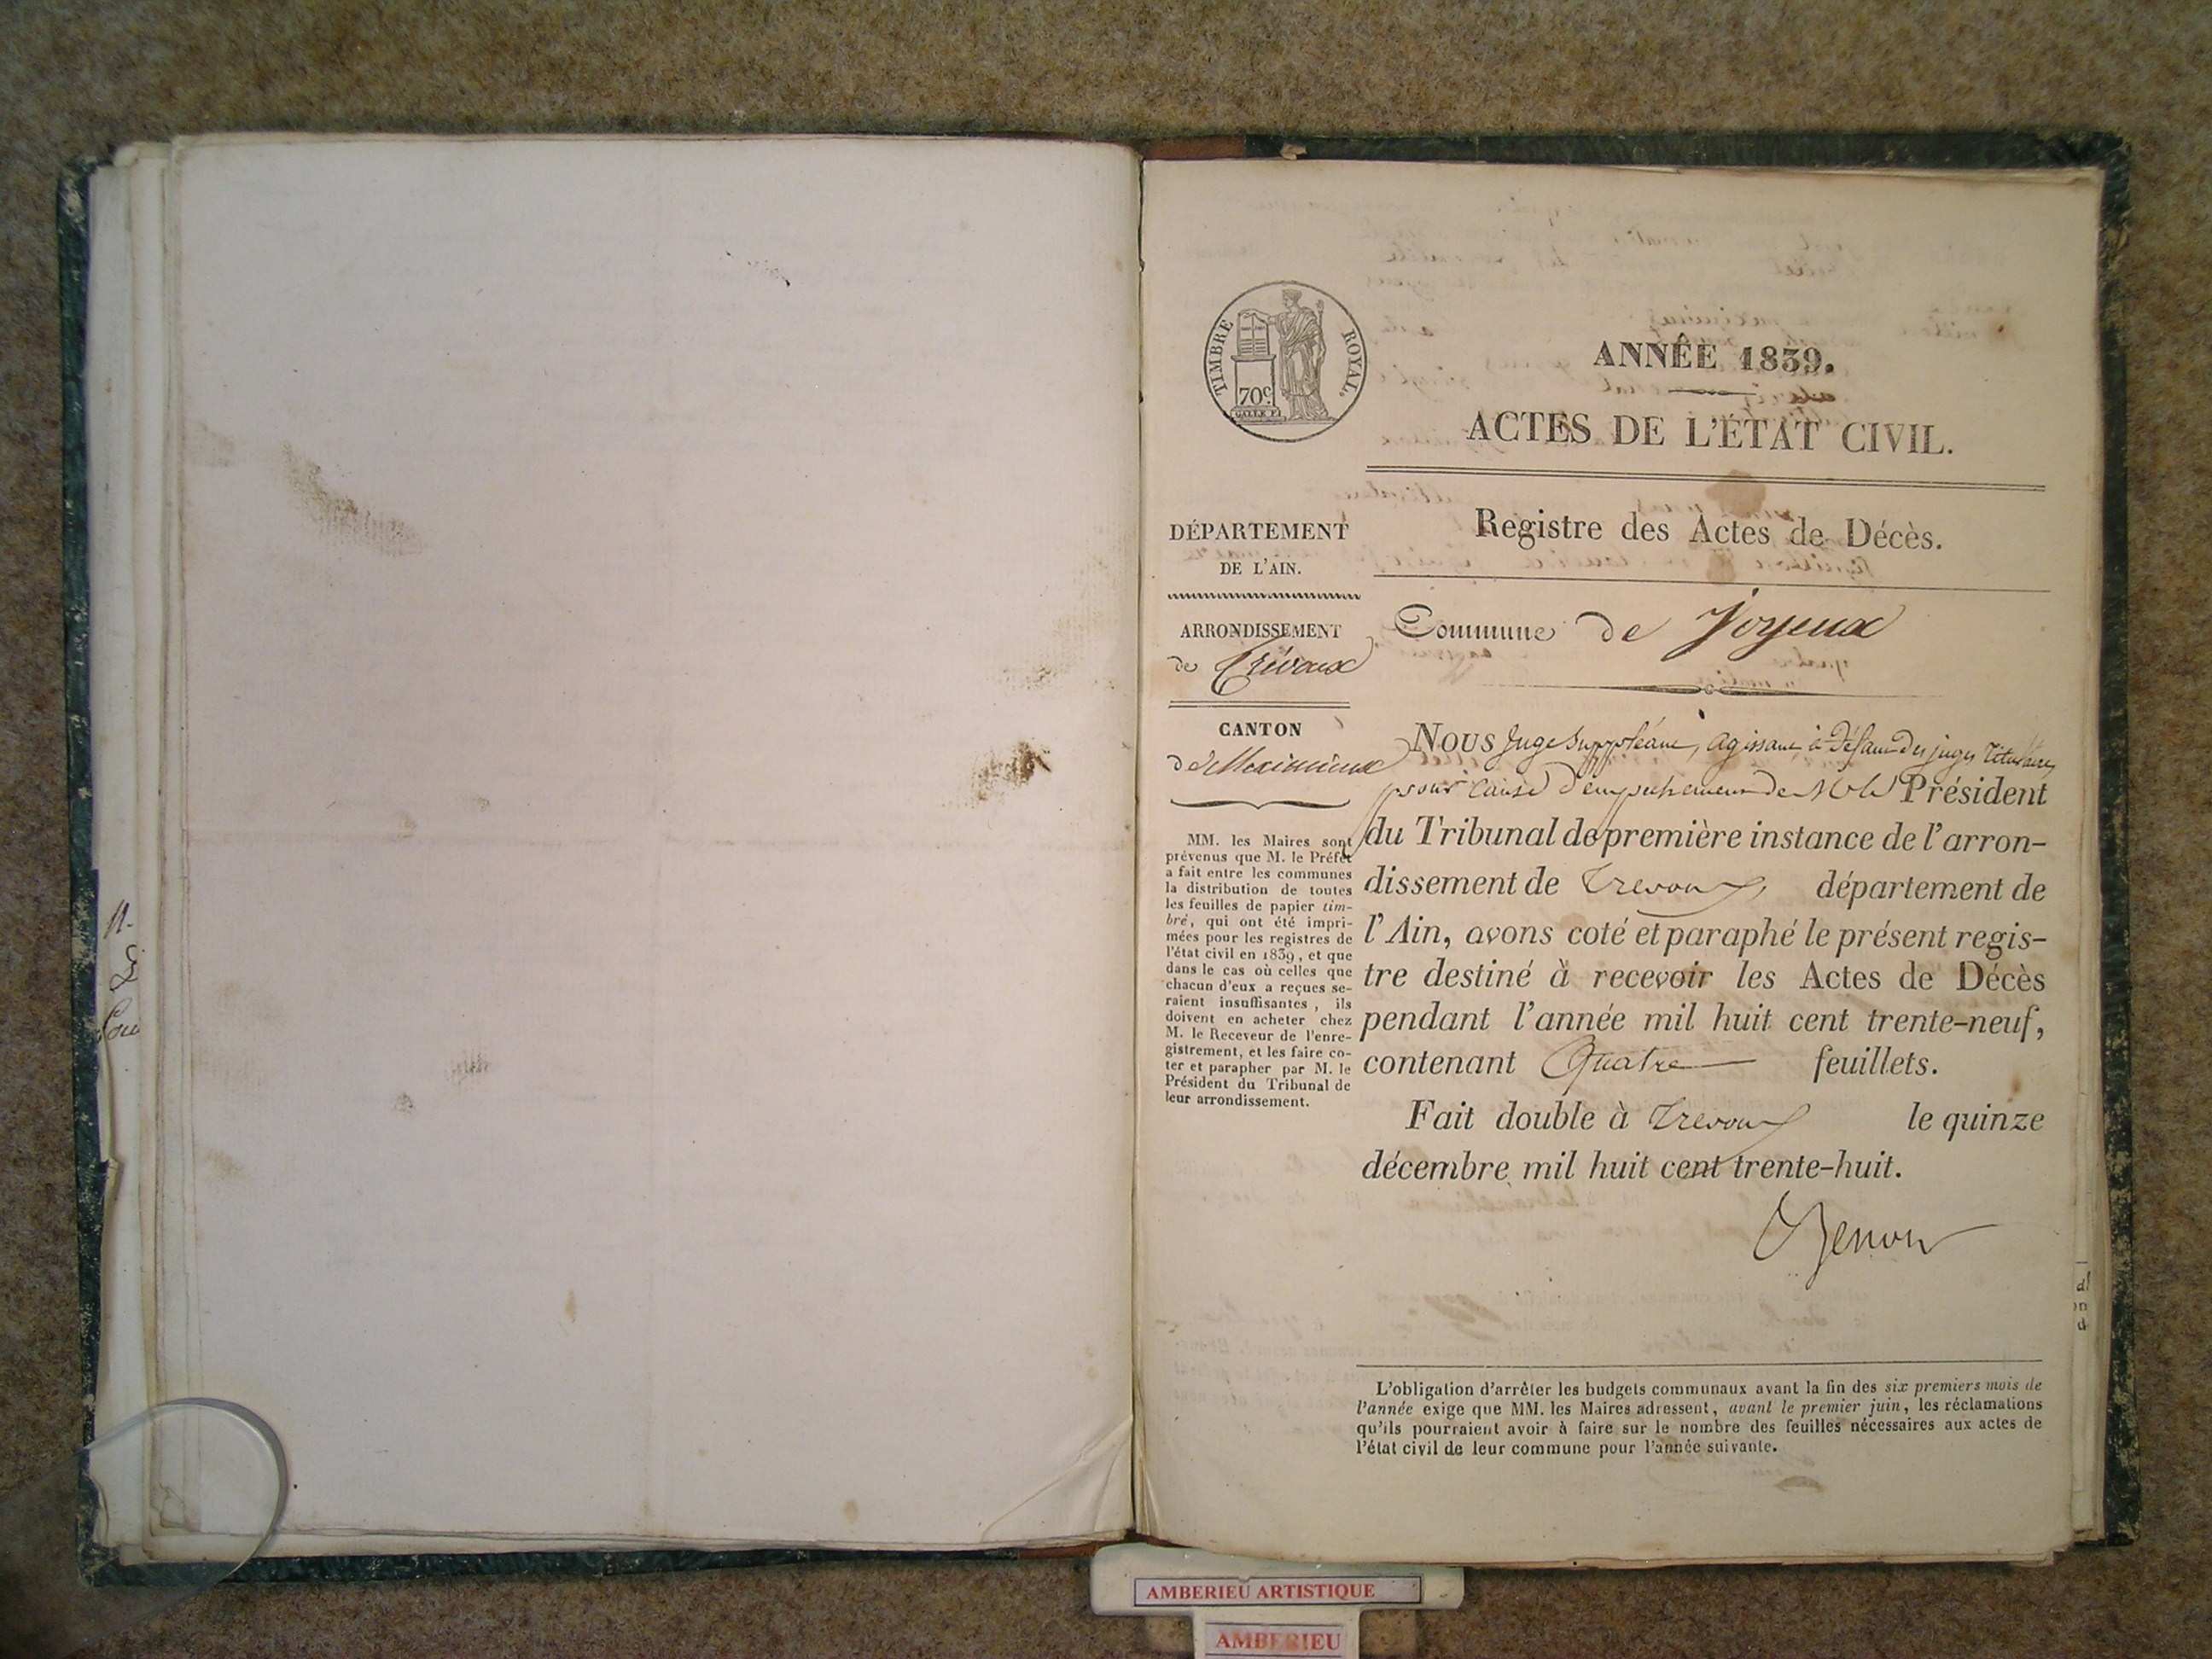 TIMBRE ROYAL.
70c.
GALLE F.
ANNÉE 1839.
ACTES DE L'ÉTAT CIVIL.
Registre des Actes de Décès.
Commune de Joyeux
DÉPARTEMENT
DE L'AIN.
ARRONDISSEMENT
de Trévoux
CANTON
de Meximieux
MM. les Maires sont
prévenus que M. le Préfet
a fait entre les communes
la distribution de toutes
les feuilles de papier tim-
bré, qui ont été impri-
mées pour les registres de
l'état civil en 1839, et que
dans le cas où celles que
chacun d'eux a reçues se-
raient insuffisantes, ils
doivent en acheter chez
M. le Receveur de l'enre-
gistrement, et les faire co-
ter et parapher par M. le
Président du Tribunal de
leur arrondissement.
Nous Juge Suppléant, agissant à défaut des juges titulaires
pour cause d'empêchement de M. le Président
du Tribunal de première instance de l'arron-
dissement de Trevoux, département de
l'Ain, avons coté et paraphé le présent regis-
tre destiné à recevoir les Actes de Décès
pendant l'année mil huit cent trente-neuf,
contenant Quatre feuillets.
Fait double à Trevoux le quinze
décembre mil huit cent trente-huit.
L'obligation d'arrêter les budgets communaux avant la fin des six premiers mois de
l'année exige que MM. les Maires adressent, avant le premier juin, les réclamations
qu'ils pourraient avoir à faire sur le nombre des feuilles nécessaires aux actes de
l'état civil de leur commune pour l'année suivante.
AMBERIEU ARTISTIQUE
AMBERIEU